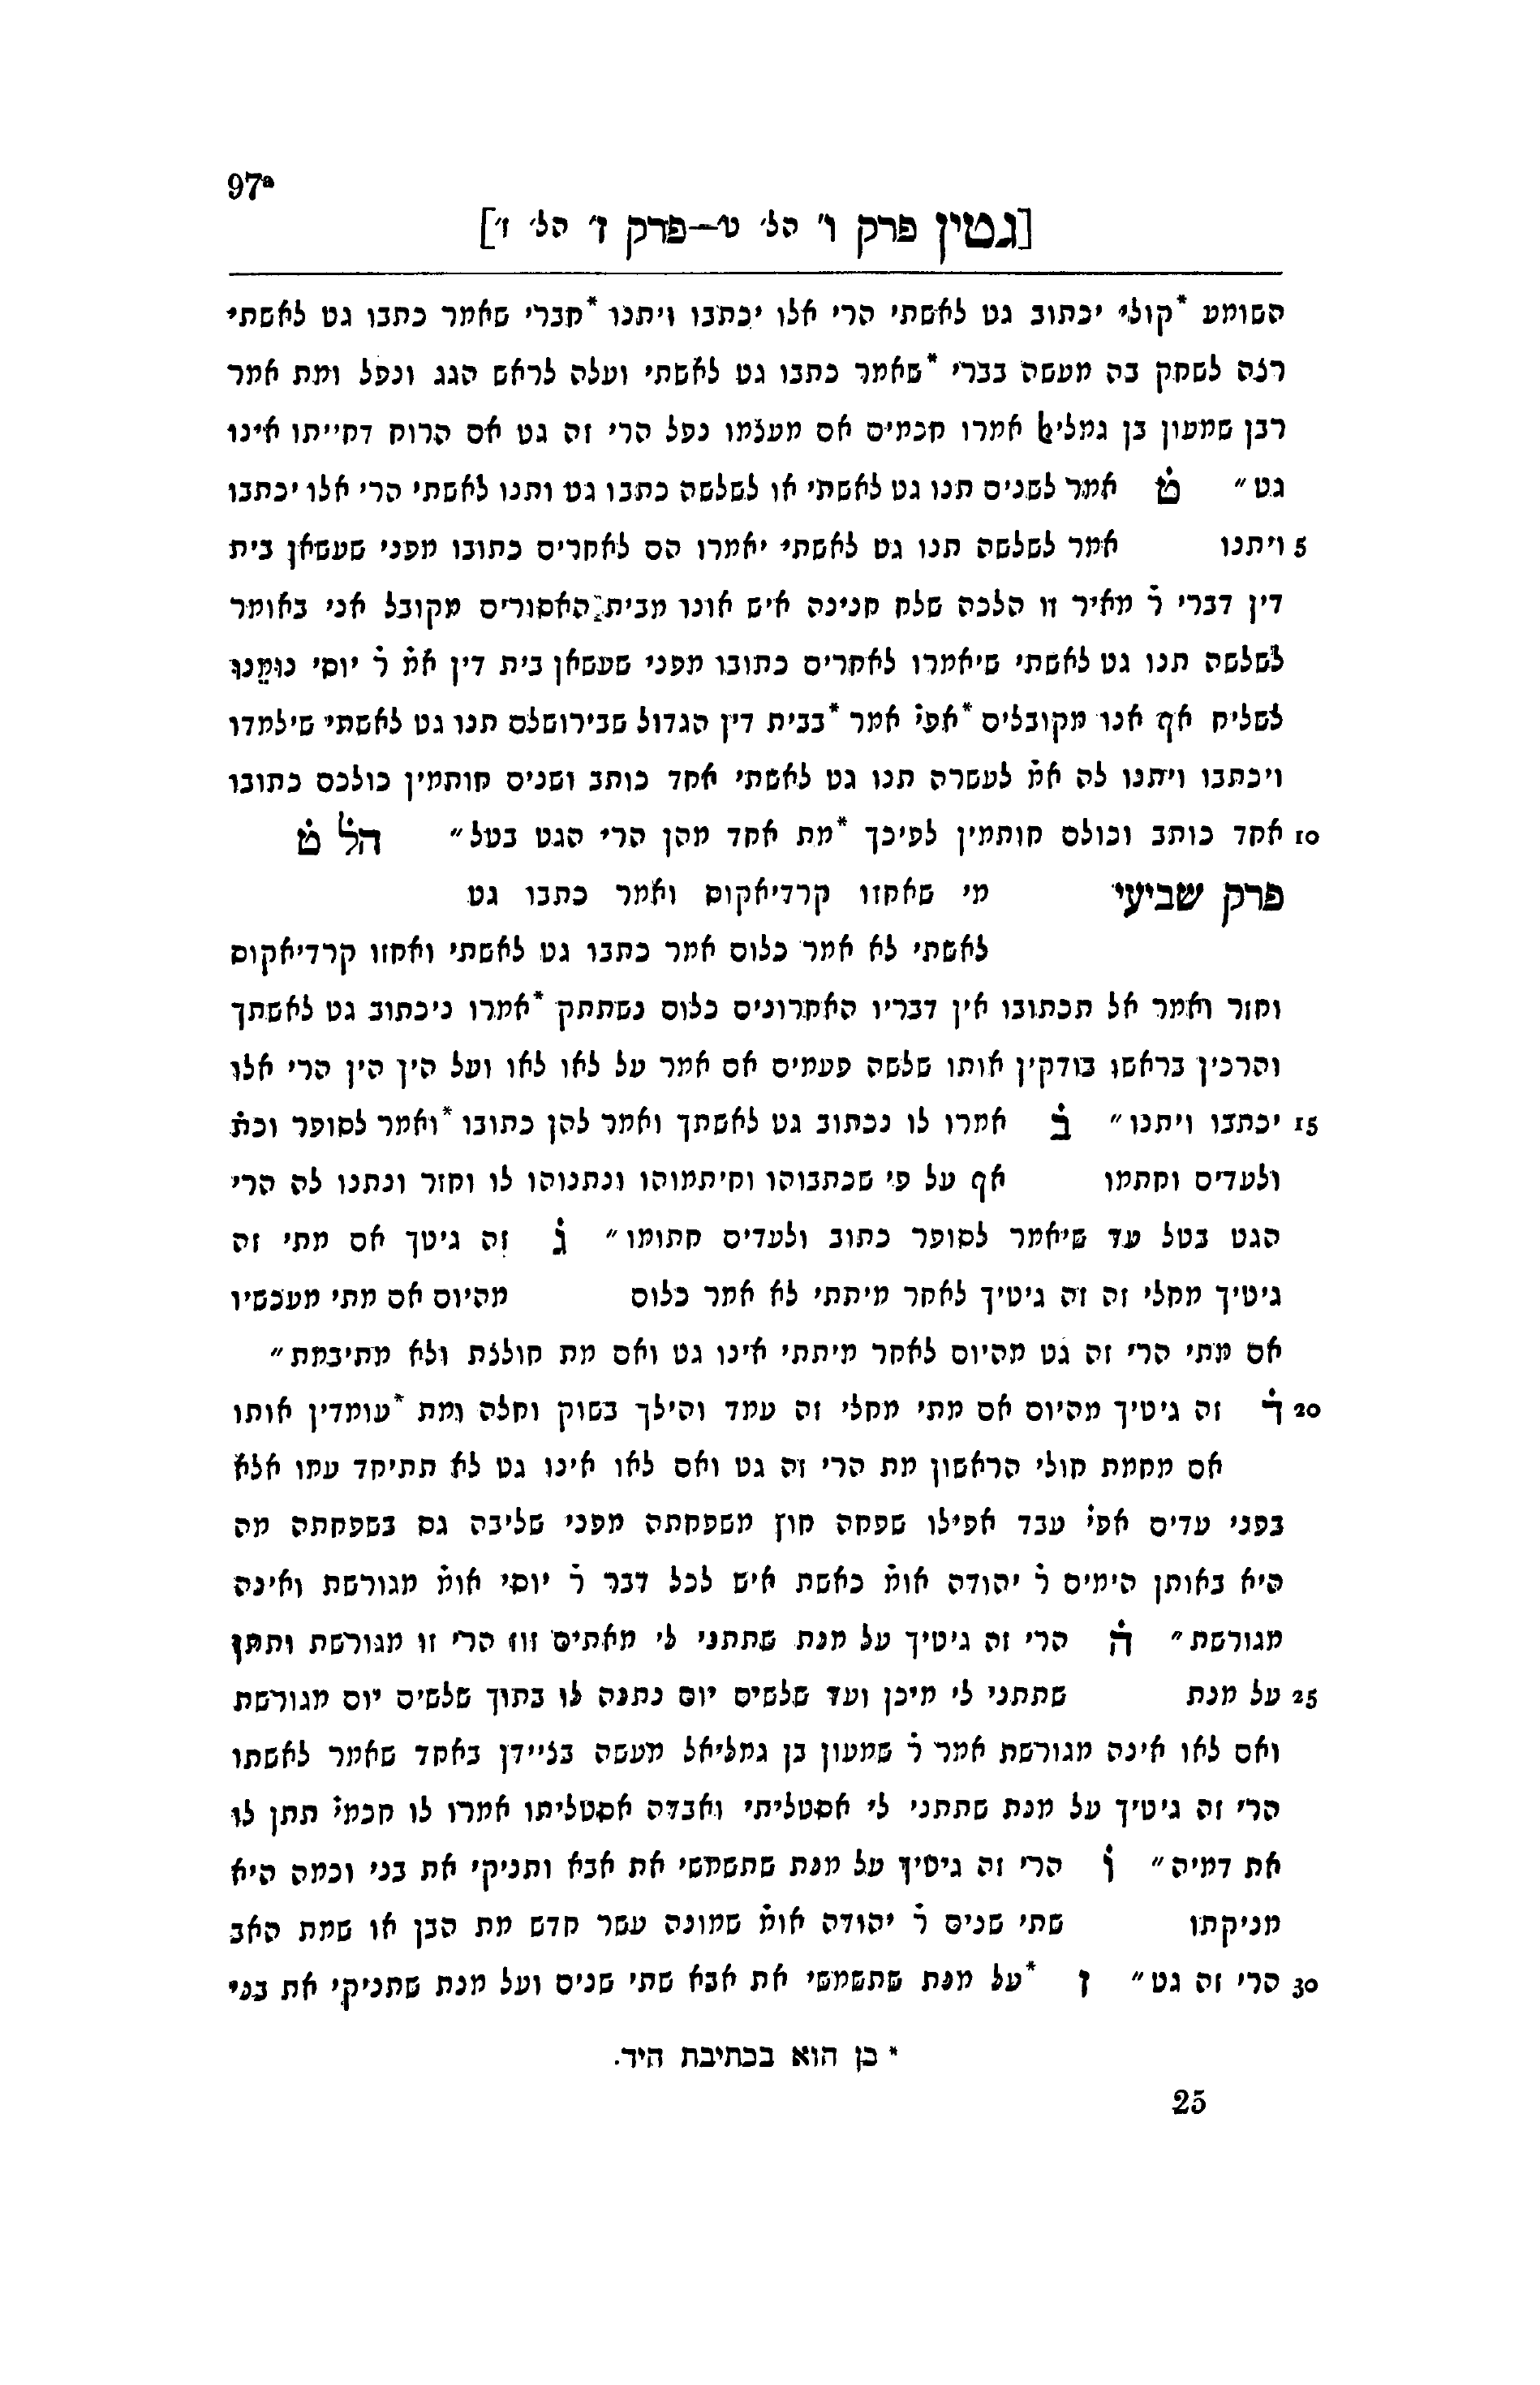 97ª
[גטין פרק ו' הל' ט'—פרק ז' הל' ז']
השומע *קולי יכתוב גט לאשתי הרי אלו יכתבו ויתנו *חברי שאמר כתבו גט לאשתי
רצה לשחק בה מעשה בברי *שאמר כתבו גט לאשתי ועלה לראש הגג ונפל ומת אמר
רבן שמעון בן גמליאל אמרו חכמים אם מעצמו נפל הרי זה גט אם הרוח דחייתו אינו
גט״ ט̇ אמר לשנים תנו גט לאשתי או לשלשה כתבו גט ותנו לאשתי הרי אלו יכתבו
5 ויתנו אמר לשלשה תנו גט לאשתי יאמרו הם לאחרים כתובו מפני שעשאן בית
דין דברי ר̇ מאיר זו הלכה שלח חנינה איש אונו מבית האסורים מקובל אני באומר
לשלשה תנו גט לאשתי שיאמרו לאחרים כתובו מפני שעשאן בית דין אמ̇ ר̇ יוסי נומינו
לשליח אף אנו מקובלים *אפי̇ אמר *בבית דין הגדול שבירושלם תנו גט לאשתי שילמדו
ויכתבו ויתנו לה אמ̇ לעשרה תנו גט לאשתי אחד כותב ושנים חותמין כולכם כתובו
10 אחד כותב וכולם חותמין לפיכך *מת אחד מהן הרי הגט בטל״ הל̇ ט̇
פרק שביעי מי שאחזו קרדיאקוס ואמר כתבו גט
לאשתי לא אמר כלום אמר כתבו גט לאשתי ואחזו קרדיאקוס
וחזר ואמר אל תכתובו אין דבריו האחרונים כלום נשתתק *אמרו ניכתוב גט לאשתך
והרכין בראשו בודקין אותו שלשה פעמים אם אמר על לאו לאו ועל הין הין הרי אלו
15 יכתבו ויתנו״ ב̇ אמרו לו נכתוב גט לאשתך ואמר להן כתובו *ואמר לסופר וכת̇
ולעדים וחתמו אף על פי שכתבוהו וחיתמוהו ונתנוהו לו וחזר ונתנו לה הרי
הגט בטל עד שיאמר לסופר כתוב ולעדים חתומו״ ג̇ זה גיטך אם מתי זה
גיטיך מחלי זה זה גיטיך לאחר מיתתי לא אמר כלום מהיום אם מתי מעכשיו
אם מתי הרי זה גט מהיום לאחר מיתתי אינו גט ואם מת חולצת ולא מתיבמת״
20 ד̇ זה גיטיך מהיום אם מתי מחלי זה עמד והילך בשוק וחלה ומת *עומדין אותו
אם מחמת חולי הראשון מת הרי זה גט ואם לאו אינו גט לא תתיחד עמו אלא
בפני עדים אפי̇ עבד אפילו שפחה חוץ משפחתה מפני שליבה גס בשפחתה מה
היא באותן הימים ר̇ יהודה אומ̇ כאשת איש לכל דבר ר̇ יוסי אומ̇ מגורשת ואינה
מגורשת״ ה̇ הרי זה גיטיך על מנת שתתני לי מאתים זוז הרי זו מגורשת ותתן
25 על מנת שתתני לי מיכן ועד שלשים יום נתנה לו בתוך שלשים יום מגורשת
ואם לאו אינה מגורשת אמר ר̇ שמעון בן גמליאל מעשה בציידן באחד שאמר לאשתו
הרי זה גיטיך על מנת שתתני לי אסטליתי ואבדה אסטליתו אמרו לו חכמי̇ תתן לו
את דמיה״ ו̇ הרי זה גיטיך על מנת שתשמשי את אבא ותניקי את בני וכמה היא
מניקתו שתי שנים ר̇ יהודה אומ̇ שמונה עשר חדש מת הבן או שמת האב
30 הרי זה גט״ ז *על מנת שתשמשי את אבא שתי שנים ועל מנת שתניקי את בני
* כן הוא בכתיבת היד.
25